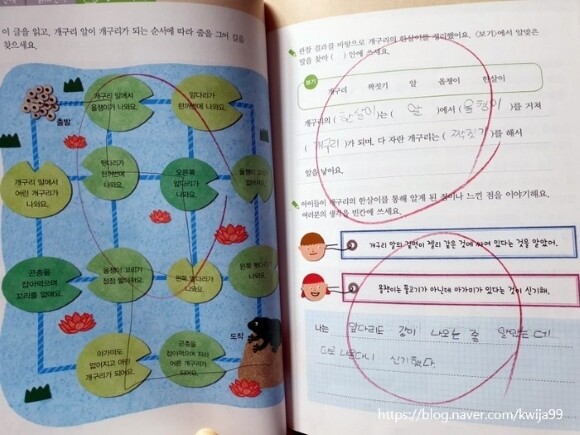 이 글을 읽고, 개구리 알이 개구리가 되는 순서에 따라 줄을 그어 길을
찾으세요.
출발
개구리 알에서
올챙이가 나와요.
앞다리가
한꺼번에 나와요.
개구리 알에서
어린 개구리가
나와요.
뒷다리가
한꺼번에
나와요.
오른쪽
앞다리가
나와요.
올챙이 꼬리가
곤충을
잡아먹으며
꼬리를 없애요.
올챙이 꼬리가
점점 짧아져요.
왼쪽 앞다리가
나와요.
왼쪽 뒷다리가
나와요.
아가미도
없어지고 어린
개구리가 되어요.
곤충을
잡아먹으며 자라
어른 개구리가
되어요.
도착
관찰 결과를 바탕으로 개구리의 한살이를 정리했어요. <보기>에서 알맞은
말을 찾아 ( ) 안에 쓰세요.
보기
개구리 짝짓기 알 올챙이 한살이
개구리의 ( 한살이 )는 ( 알 )에서 ( 올챙이 )를 거쳐
( 개구리 )가 되며, 다 자란 개구리는 ( 짝짓기 )를 해서
알을 낳아요.
아이들이 개구리의 한살이를 통해 알게 된 점이나 느낀 점을 이야기해요.
여러분의 생각을 빈칸에 쓰세요.
개구리 알의 겉면이 젤리 같은 것에 싸여 있다는 것을 알았어.
올챙이는 물고기가 아닌데 아가미가 있다는 것이 신기해.
나는 앞다리도 같이 나오는 줄 알았는데
따로 나온다니 신기했다.
https://blog.naver.com/kwija99